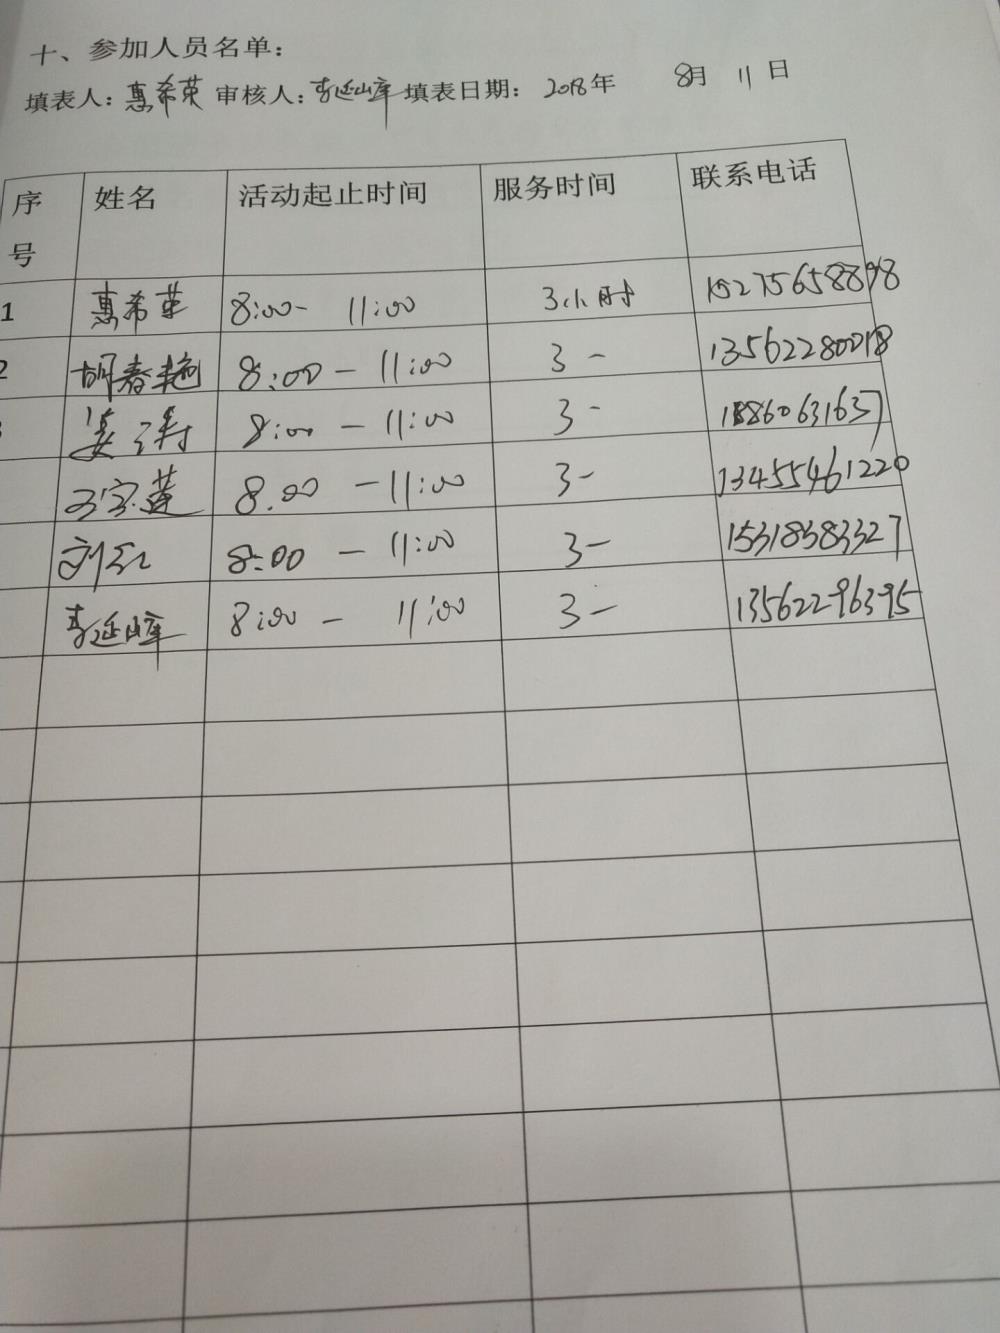 十、参加人员名单：
填表人：惠希荣 审核人：李延峰 填表日期：2018年 8月 11日
序号 姓名 活动起止时间 服务时间 联系电话
1 惠希荣 8:00- 11:00 3小时 15275658898
2 胡春艳 8:00 - 11:00 3 - 13562280018
姜 8:00 - 11:00 3 - 18860631637
8.00 - 11:00 3 - 13455461220
刘红 8:00 - 11:00 3 - 15318383327
李延峰 8:00 - 11:00 3 - 13562296395